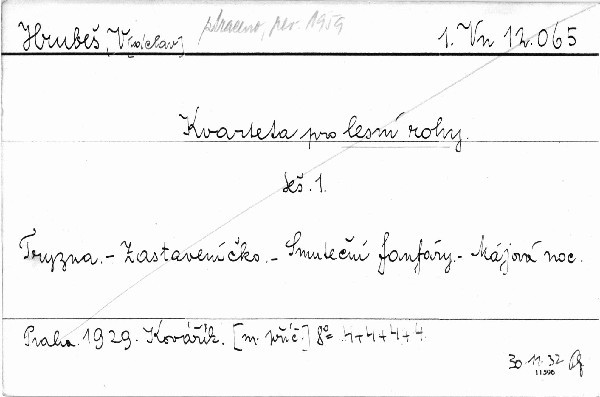 Hrubeš, V[áclav] ztraceno, rev. 1959 1. Vn 12.065
Kvarteta pro lesní rohy.
Seš. 1.
Tryzna. - Zastaveníčko. - Smuteční fanfáry. - Májová noc.
Praha 1929. Kovářík. [m. příč.] 8° 4+4+4+4
30.11.32
11596